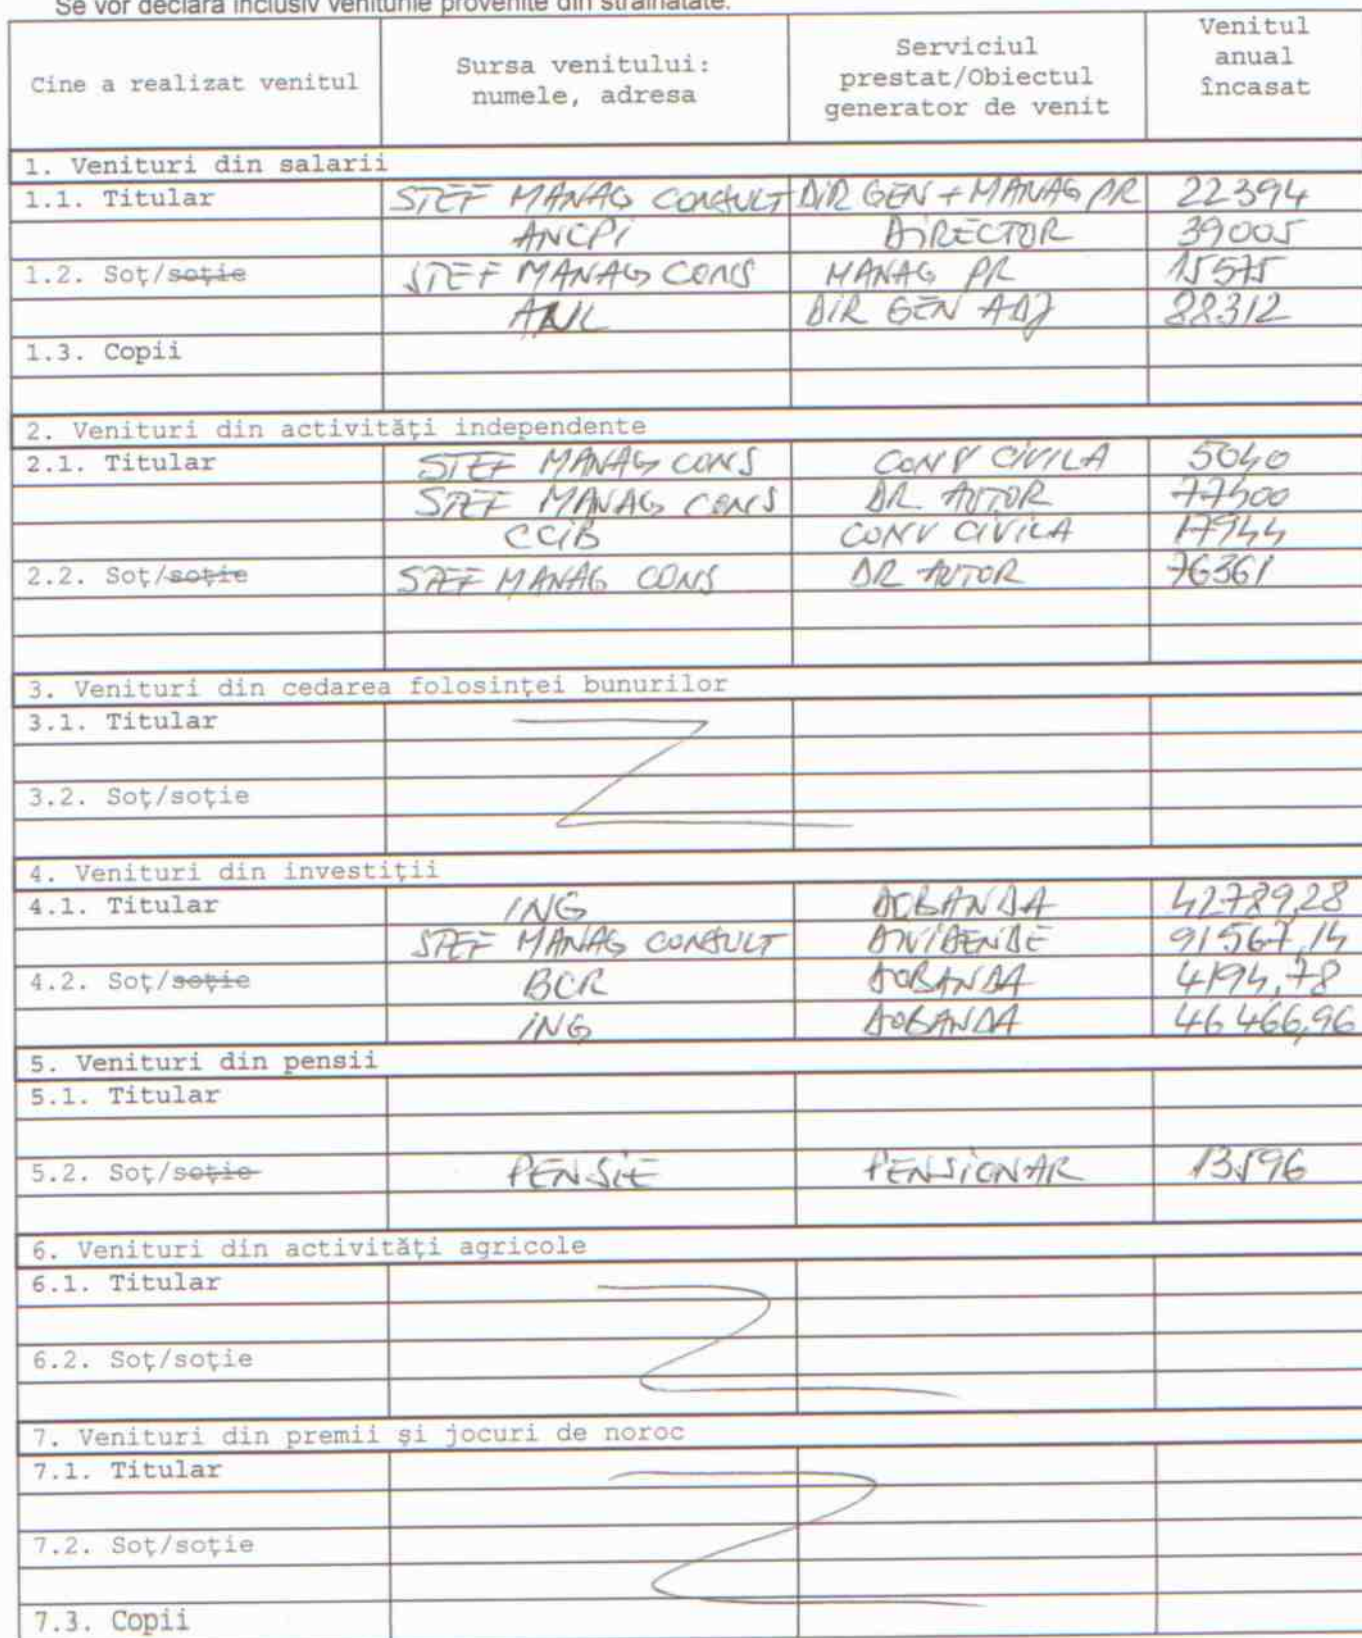 Se vor declara inclusiv veniturile provenite din străinătate.
Cine a realizat venitul
Sursa venitului:
numele, adresa
Serviciul
prestat/Obiectul
generator de venit
Venitul
anual
încasat
1. Venituri din salarii
1.1. Titular STEF MANAG CONSULT DIR GEN + MANAG PR 22394
ANCPI DIRECTOR 39005
1.2. Soț/soție STEF MANAG CONS MANAG PR 15575
ANL DIR GEN ADJ 88312
1.3. Copii
2. Venituri din activități independente
2.1. Titular STEF MANAG CONS CONV CIVILA 5040
STEF MANAG CONS DR AUTOR 77500
CCIB CONV CIVILA 17944
2.2. Soț/soție STEF MANAG CONS DR AUTOR 76361
3. Venituri din cedarea folosinței bunurilor
3.1. Titular
3.2. Soț/soție
4. Venituri din investiții
4.1. Titular ING DOBANDA 42789,28
STEF MANAG CONSULT DIVIDENDE 91567,14
4.2. Soț/soție BCR DOBANDA 4194,78
ING DOBANDA 46466,96
5. Venituri din pensii
5.1. Titular
5.2. Soț/soție PENSIE PENSIONAR 13596
6. Venituri din activități agricole
6.1. Titular
6.2. Soț/soție
7. Venituri din premii și jocuri de noroc
7.1. Titular
7.2. Soț/soție
7.3. Copii